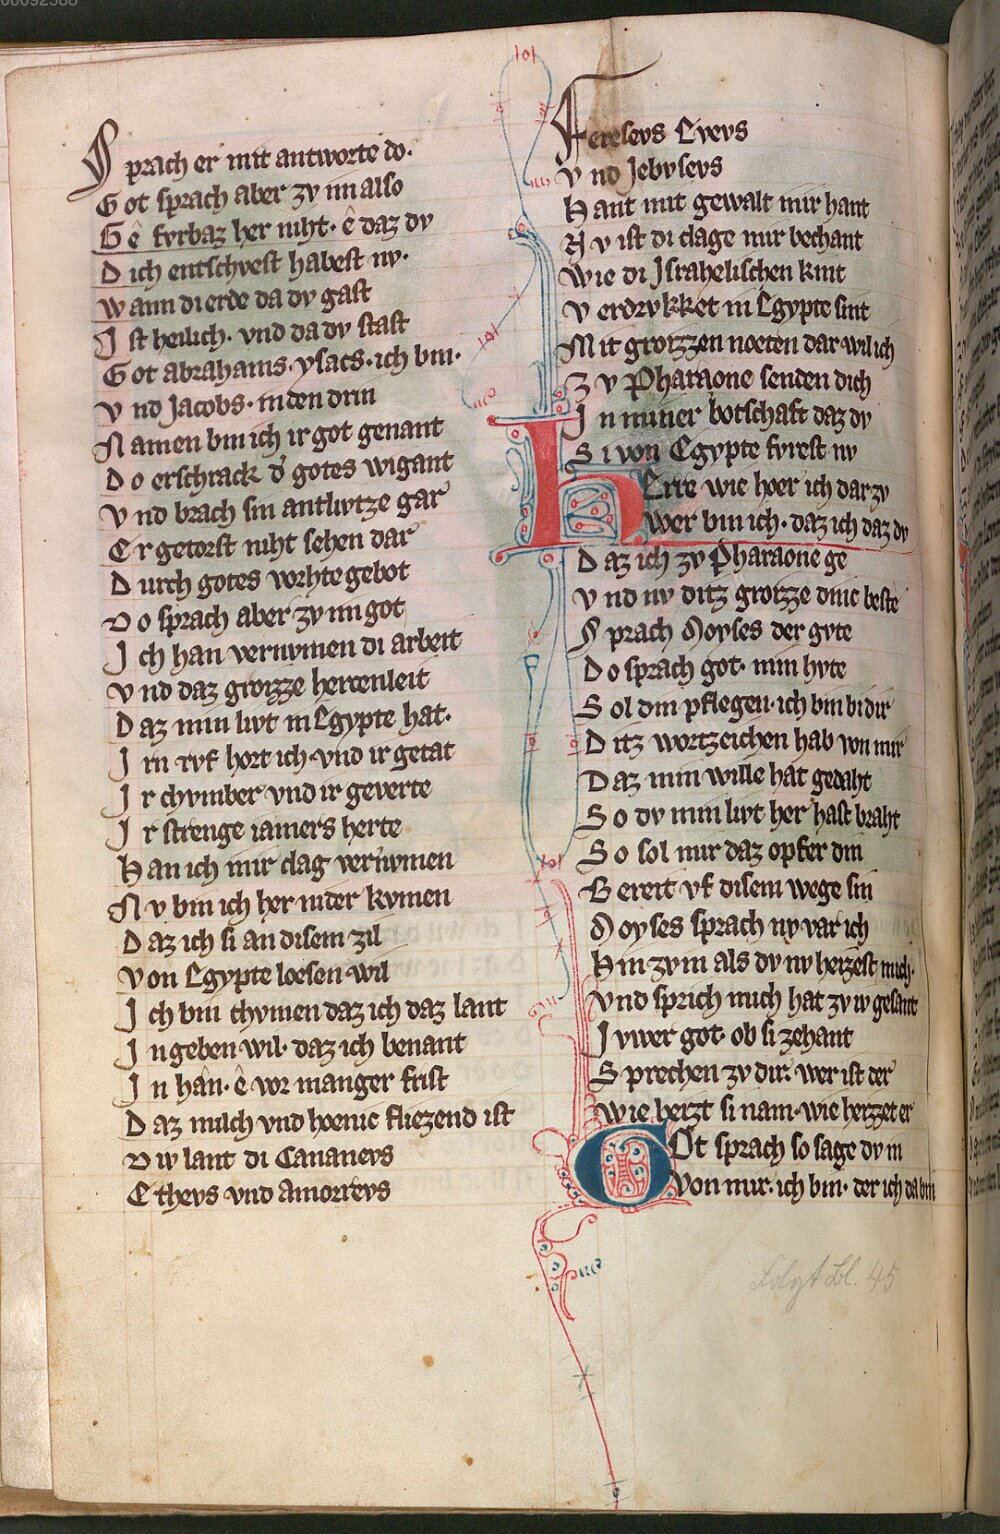 Sprach er mit antworte do.
Got sprach aber zv im also
Gê fvrbaz her niht. ê daz dv
Dich entschvest habest nv.
Wann di erde da dv gast
Ist heilich. vnd da dv stast
Got abrahams. ysacs. ich bin.
Vnd Jacobs. in den drin
Namen bin ich ir got genant
Do erschrack d' gotes wigant
Vnd brach sin antlvtze gar
Er getorst niht sehen dar
Durch gotes vorhte gebot
Do sprach aber zv im got
Ich han vernvmen di arbeit
Vnd daz grozze hertenleit
Daz min livt in Egypte hat.
Irn rvf hort ich. vnd ir getat
Ir chvmber vnd ir geverte
Ir strenge iamers herte
Han ich mir clag vernvmen
Nv bin ich her nider kvmen
Daz ich si an disem zil
Von Egypte loesen wil
Ich bin chvmen daz ich daz lant
In geben wil. daz ich benant
In hân. ê vor manger frist
Daz milch vnd hoenic fliezend ist
Div lant di Cananevs
Ethevs vnd Amorrevs
Feresevs Evevs
Vnd Jebvsevs
Hant mit gewalt mir hant
Nv ist di clage mir bechant
Wie di Israhelischen kint
Verdrvkket in Egypte sint
Mit grozzen noeten dar wil ich
Zv Pharaone senden dich
In miner botschaft daz dv
Si von Egypte fvrest nv
Herre wie hoer ich dar zv
Wer bin ich. daz ich daz dv
Daz ich zv Pharaone ge
Vnd nv ditz grozze dinc beste
Sprach Moyses der gvte
Do sprach got. min hvte
Sol din pflegen. ich bin bi dir
Ditz wortzeichen hab von mir
Daz min wille hat gedaht
So dv min livt her hast braht
So sol mir daz opfer din
Bereit vf disem wege sin
Moyses sprach nv var ich
Hin zv in als dv nv heizest mich.
Vnd sprich mich hat zv iv gesant
Ivwer got. ob si zehant
Sprechen zv dir. wer ist der
Wie heizt sin nam. wie heizzet er
Got sprach so sage dv in
Von mir. ich bin. der ich da bin
folgt Bl. 45